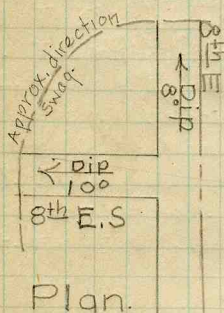 Approx. direction
swag.
8th E
Dip
8°
Dip
10°
8th E.S
Plan.